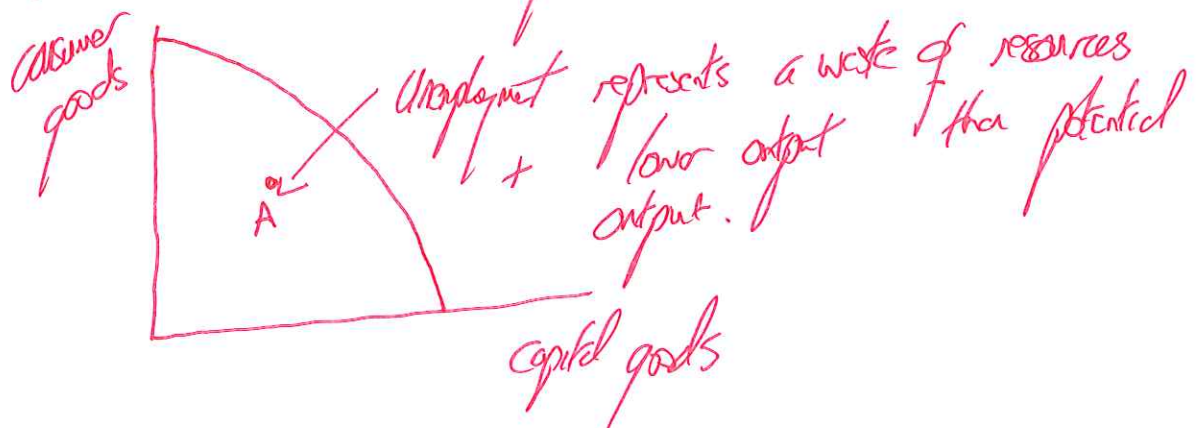 consumer
goods
Unemployment represents a waste of resources
+ lower output than potential
output.
A
capital goods